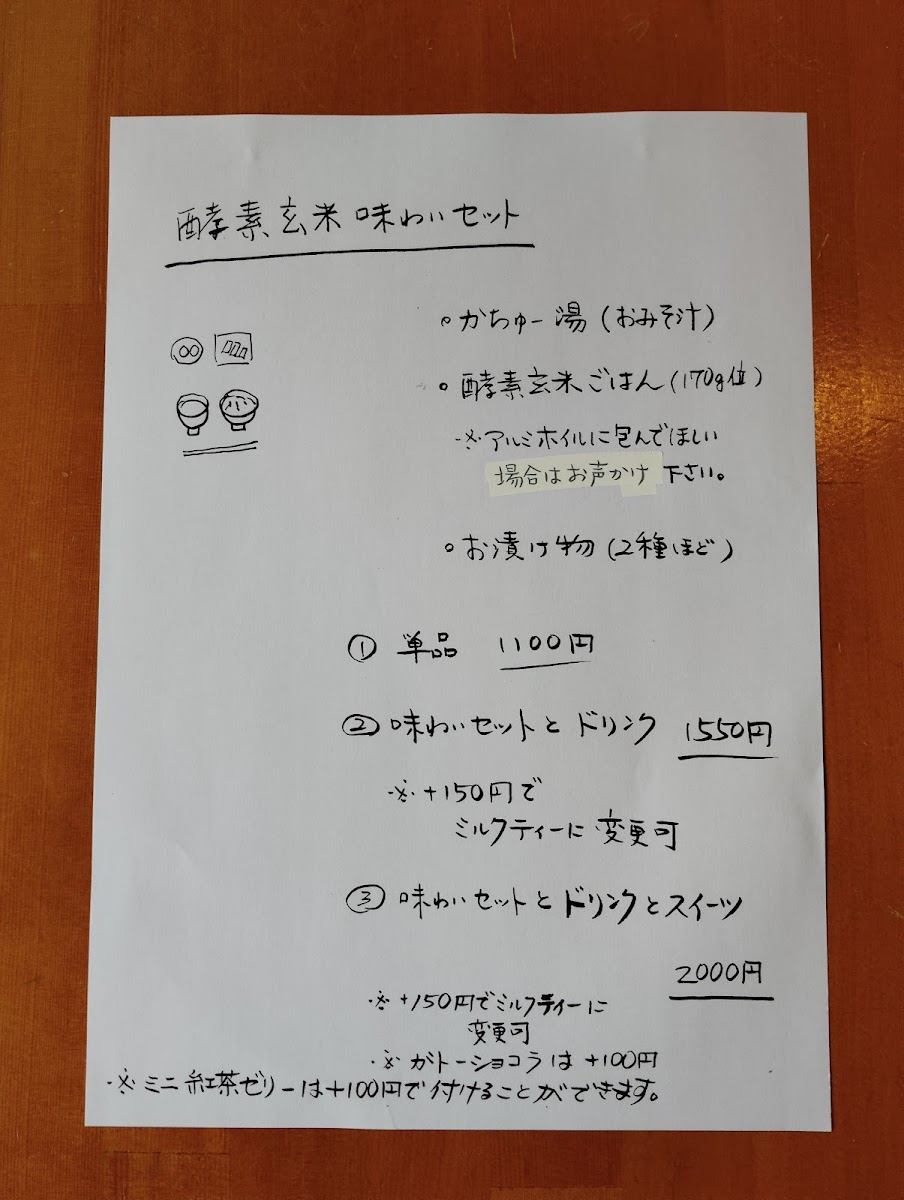 酵素玄米味わいセット
○かちゅー湯(おみそ汁)
○酵素玄米ごはん(170g位)
※アルミホイルに包んでほしい
場合はお声かけ下さい。
○お漬け物(2種ほど)
① 単品 1100円
② 味わいセットとドリンク 1550円
※+150円で
ミルクティーに変更可
③ 味わいセットとドリンクとスイーツ
2000円
※+150円でミルクティーに
変更可
※ガトーショコラは+100円
※ミニ紅茶ゼリーは+100円で付けることができます。